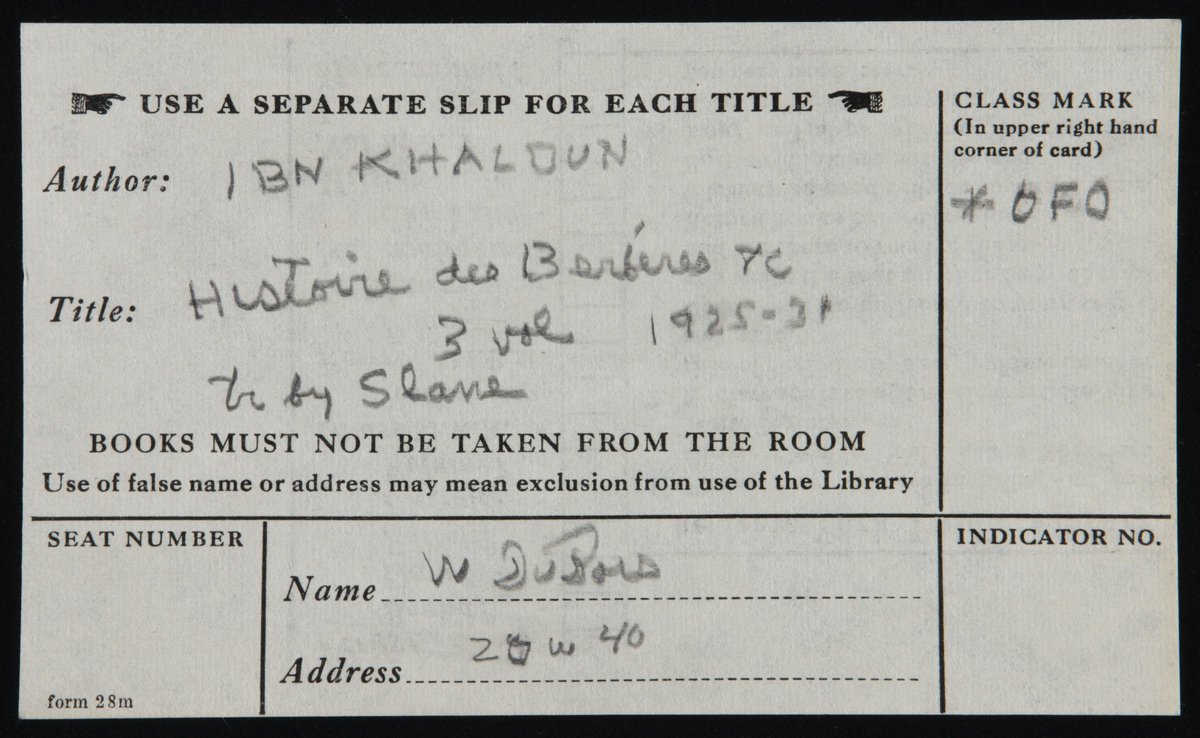 USE A SEPARATE SLIP FOR EACH TITLE
CLASS MARK
(In upper right hand
corner of card)
* OFO
Author: IBN KHALDUN
Title: Histoire des Berbères &c
3 vol 1925-31
tr by Slane
BOOKS MUST NOT BE TAKEN FROM THE ROOM
Use of false name or address may mean exclusion from use of the Library
SEAT NUMBER
Name W DuBois
Address 20 W 40
INDICATOR NO.
form 28m